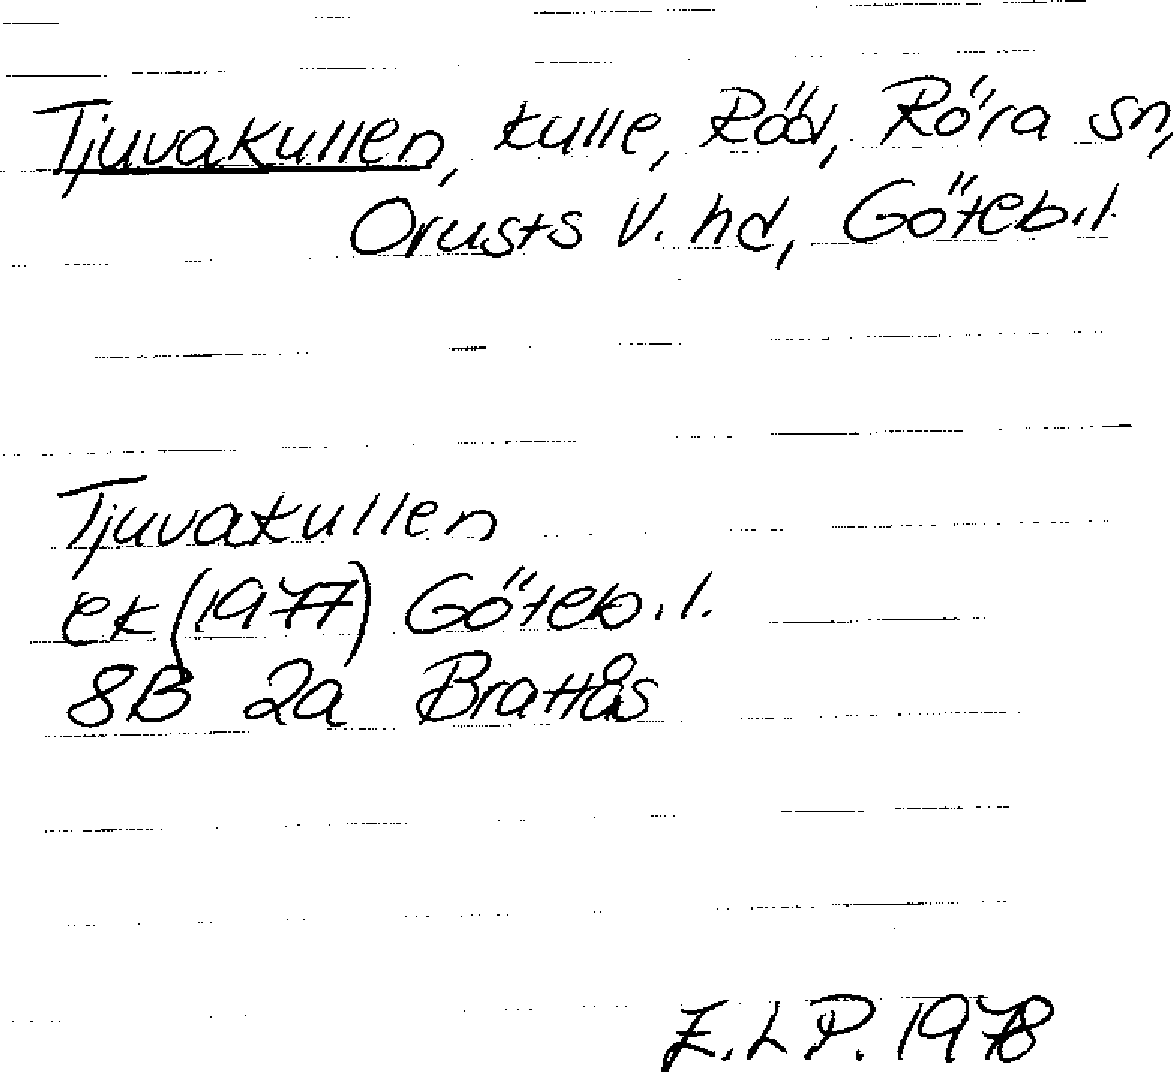 Tjuvakullen, kulle, Röd, Röra sn,
Orusts V. hd, Göteb.l.
Tjuvakullen
ek (1977) Göteb.l.
8B 2a Brattås
E.L.P. 1978